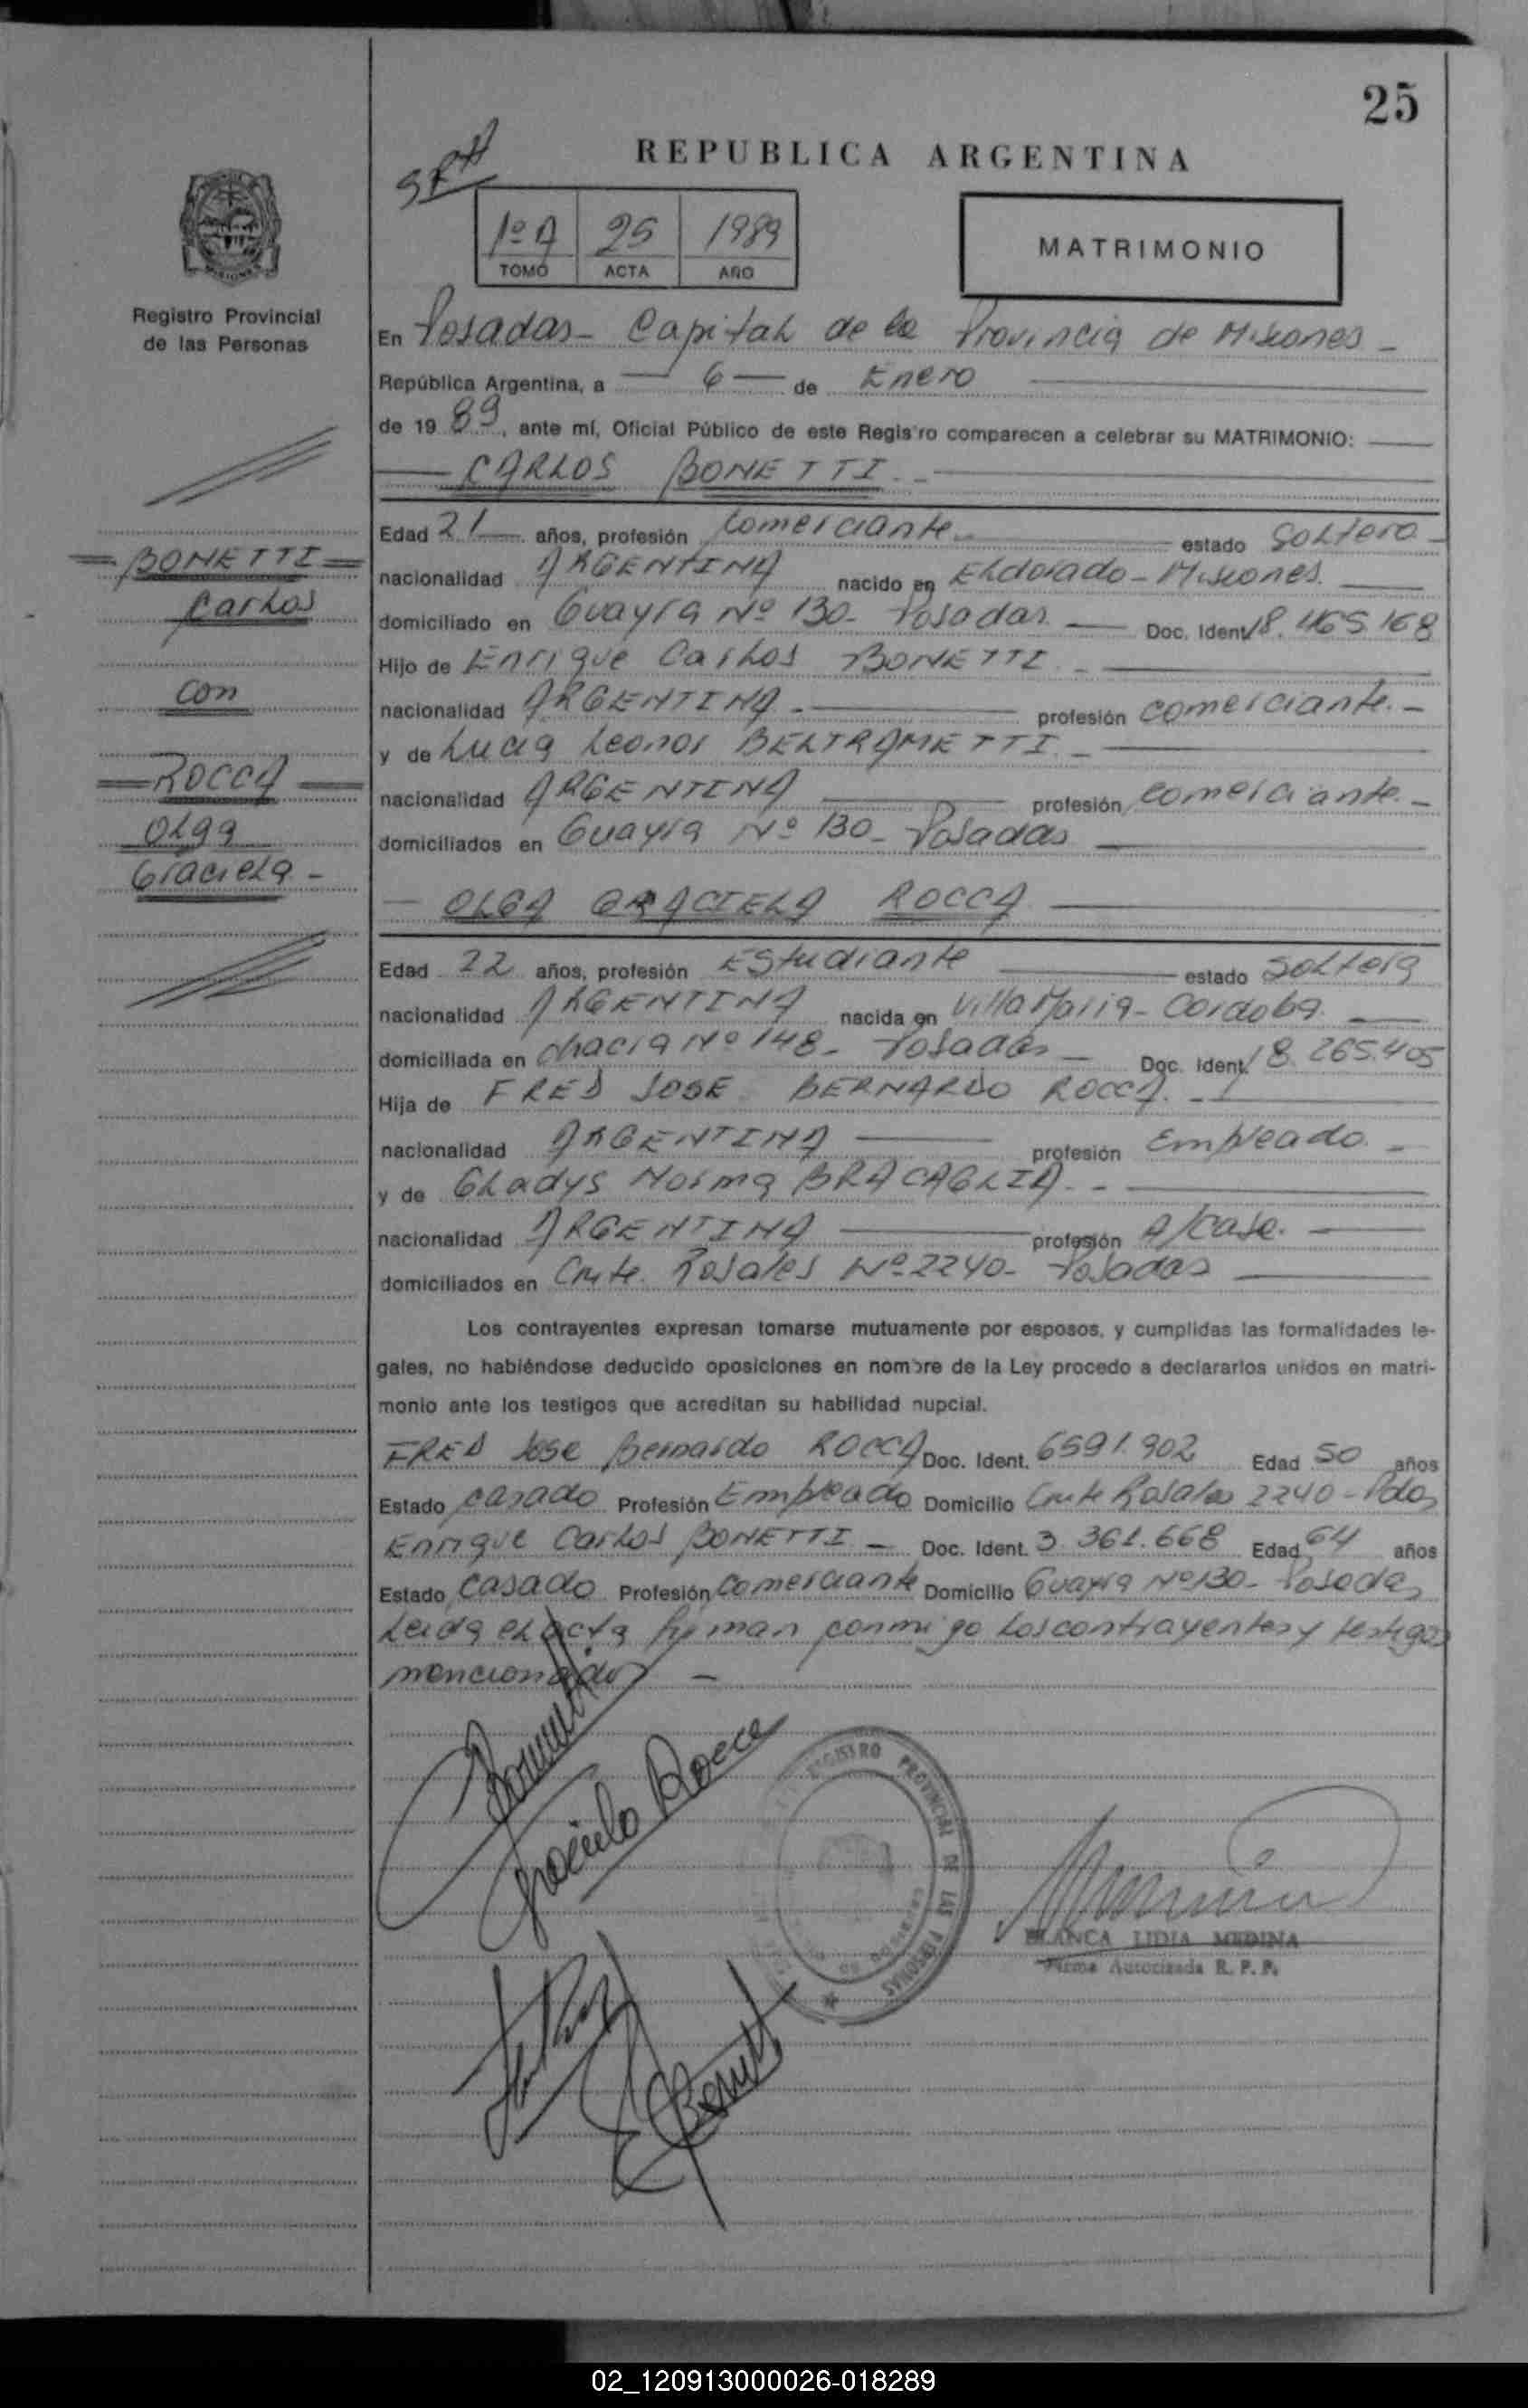 25
REPUBLICA ARGENTINA
1º A 25 1989
TOMO ACTA AÑO
MATRIMONIO
Registro Provincial
de las Personas
En Posadas - Capital de la Provincia de Misiones -
República Argentina, a 6 de Enero
de 1989, ante mí, Oficial Público de este Registro comparecen a celebrar su MATRIMONIO:
CARLOS BONETTI.-
Edad 21 años, profesión Comerciante estado Soltero
nacionalidad ARGENTINA nacido en Eldorado - Misiones.
domiciliado en Guayra Nº 130- Posadas Doc. Ident. 18.465.168
Hijo de Enrique Carlos BONETTI.-
nacionalidad ARGENTINA.- profesión comerciante.-
y de Lucia Leonor BELTRAMETTI.-
nacionalidad ARGENTINA profesión comerciante.-
domiciliados en Guayra Nº 130- Posadas
OLGA GRACIELA ROCCA
Edad 22 años, profesión Estudiante estado Soltera
nacionalidad ARGENTINA nacida en Villa Maria- Cordoba.
domiciliada en chacra Nº 148- Posadas Doc. Ident. 18.265.405
Hija de FRED JOSE BERNARDO ROCCA.-
nacionalidad ARGENTINA profesión Empleado.-
y de Gladys Norma BRACAGLIA.-
nacionalidad ARGENTINA profesión A/Casa.
domiciliados en Cmte. Rosales Nº 2240- Posadas
Los contrayentes expresan tomarse mutuamente por esposos, y cumplidas las formalidades le-
gales, no habiéndose deducido oposiciones en nombre de la Ley procedo a declararlos unidos en matri-
monio ante los testigos que acreditan su habilidad nupcial.
FRED Jose Bernardo ROCCA Doc. Ident. 6591.902 Edad 50 años
Estado casado Profesión Empleado Domicilio Cmte Rosales 2240 - Pdas
Enrique Carlos BONETTI - Doc. Ident. 3.361.668 Edad 64 años
Estado Casado Profesión Comerciante Domicilio Guayra Nº 130- Posadas
Leida el acta firman conmigo los contrayentes y testigos
mencionados -
BONETTI
Carlos
con
ROCCA
Olga
Graciela -
Graciela Rocca
REGISTRO PROVINCIAL DE LAS PERSONAS
BLANCA LIDIA MEDINA
Firma Autorizada R. P. P.
02_120913000026-018289